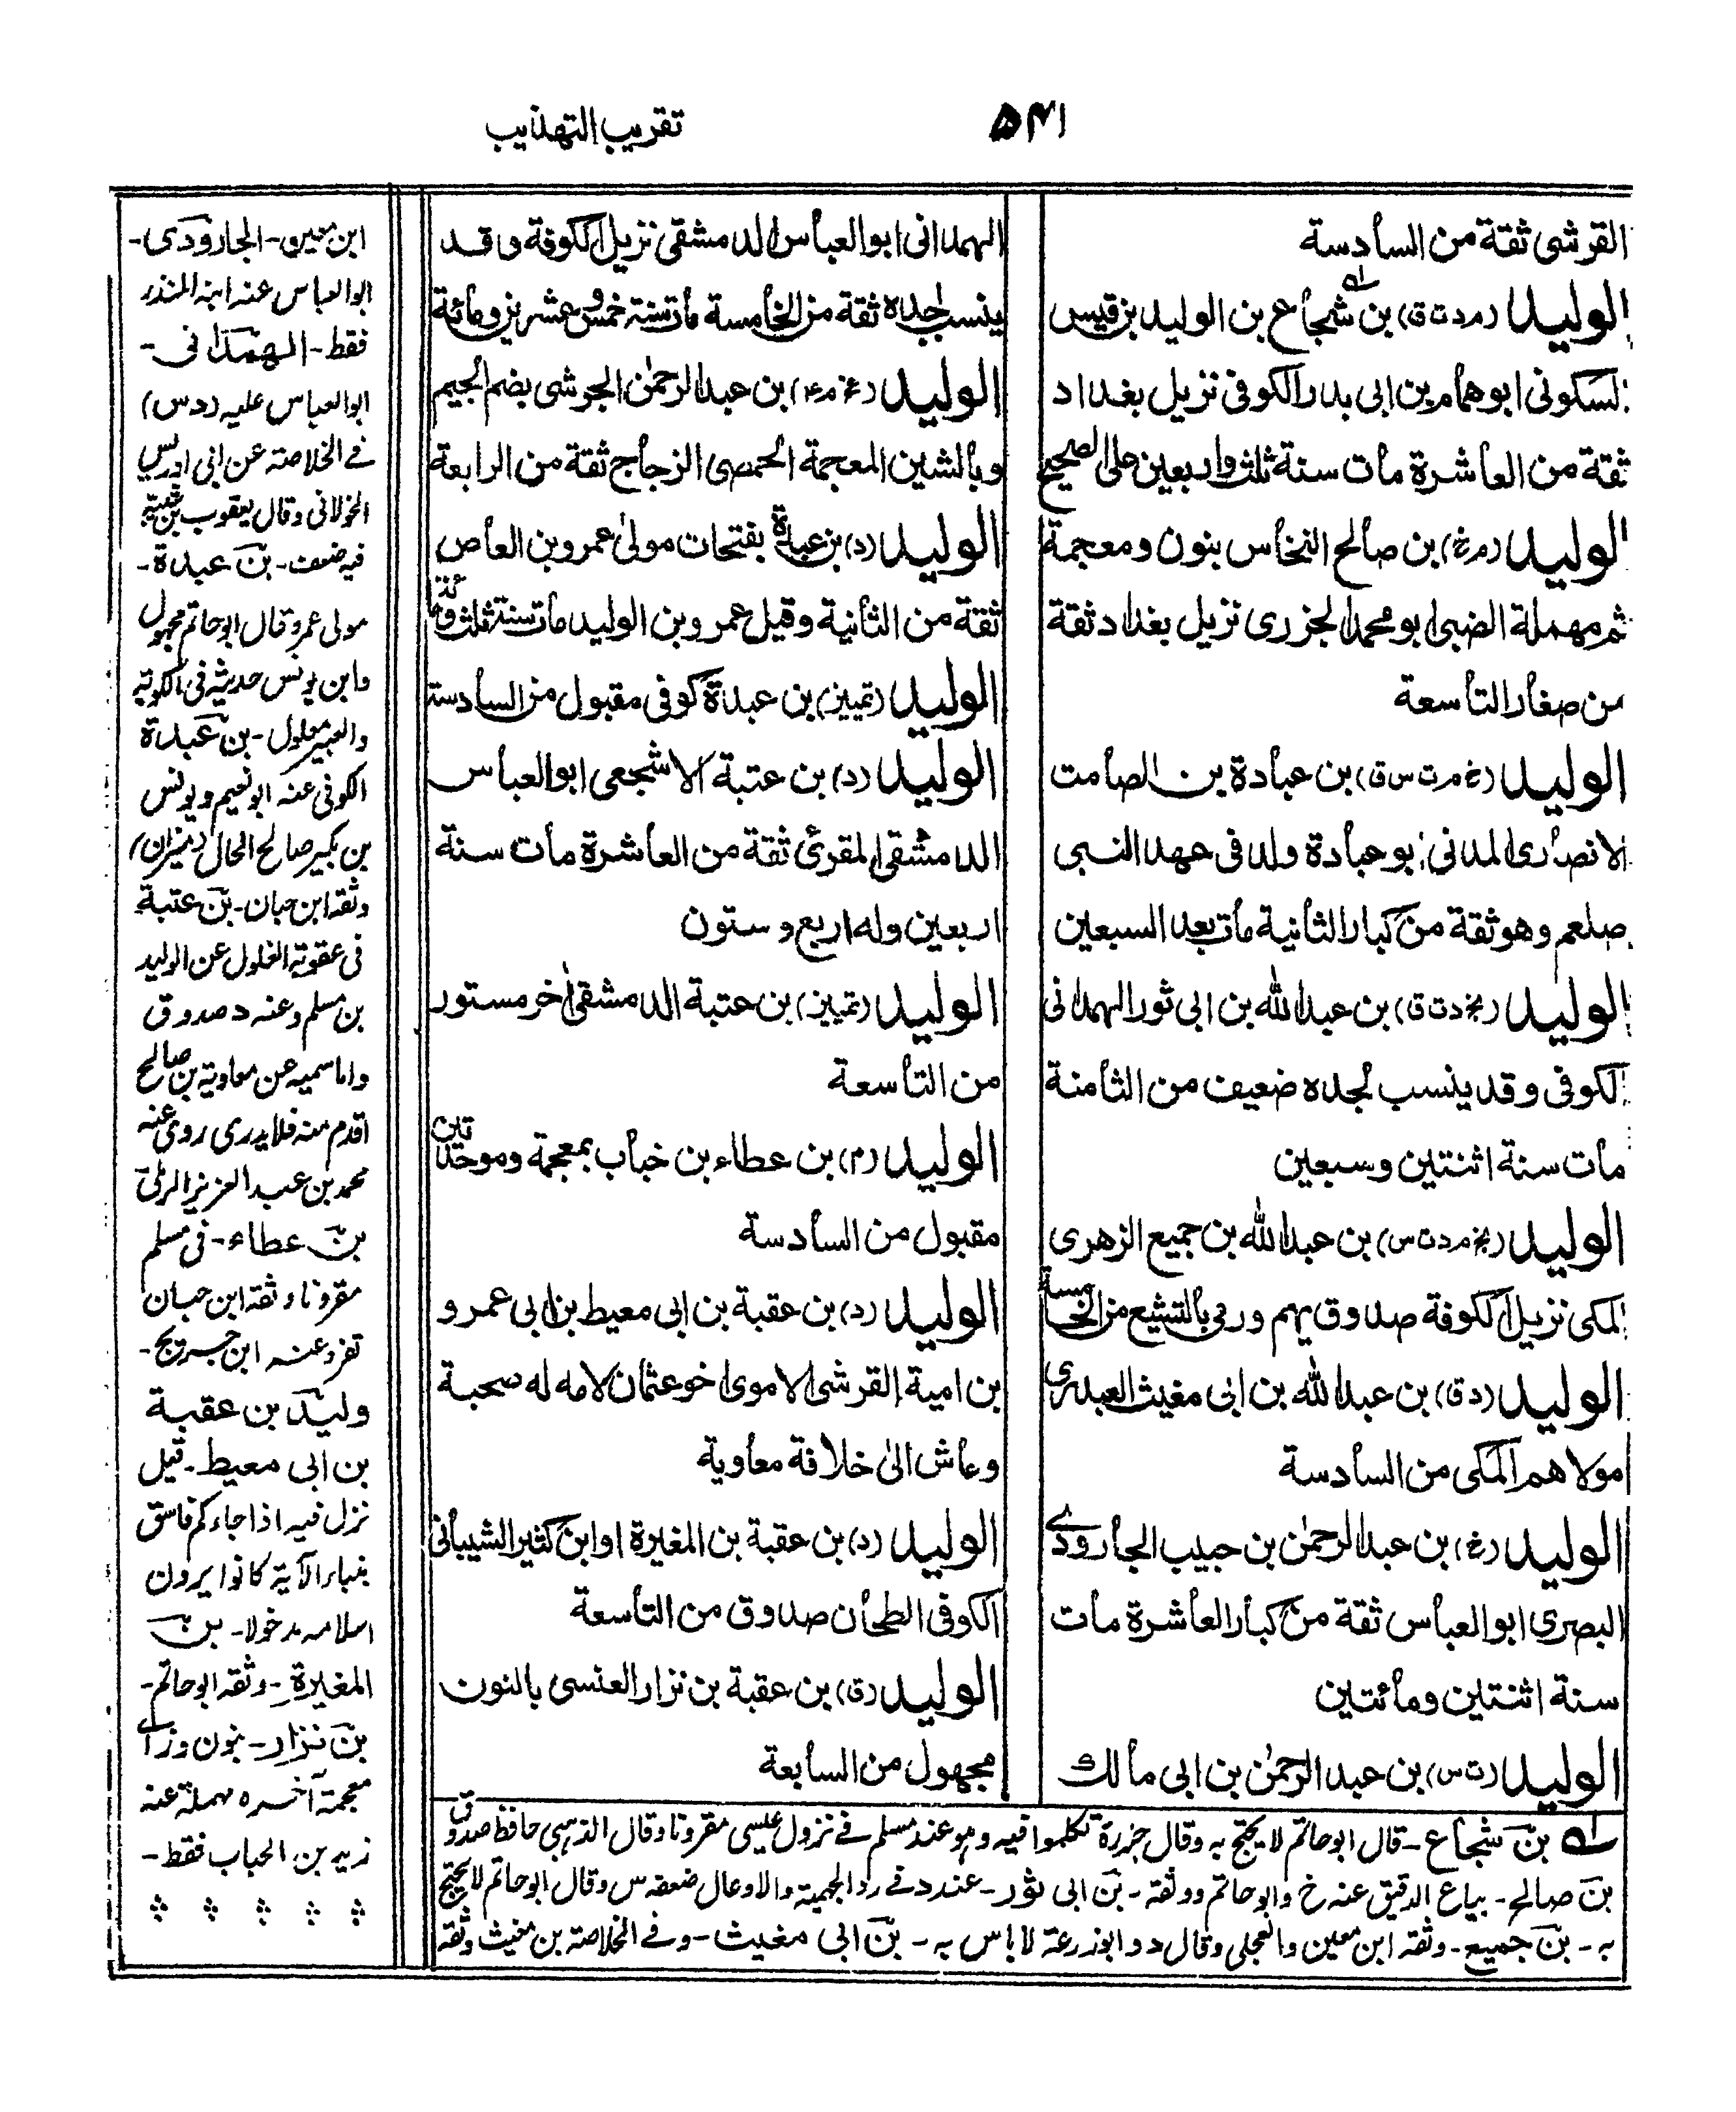 ٥٤١
تقريب التهذيب
القرشى ثقة من السأدسة
الوليد (م د ت ق) بن شجأع بن الوليد بن قيس
السكونى ابو همام بن ابى بدر الكوفى نزيل بغداد
ثقة من العأشرة مأت سنة ثلث واربعين على الصحيح
الوليد (م خ) بن صالح النخأس بنون ومعجمة
ثم مهملة الضبى ابو محمد الجزرى نزيل بغداد ثقة
من صغأر التأسعة
الوليد (خ م ت س ق) بن عبأدة بن الصأمت
الانصأرى المدنى ابو عبادة ولد فى عهد النبى
صلعم وهو ثقة من كبار الثأنية مأت بعد السبعين
الوليد (بخ د ت ق) بن عبد الله بن ابى ثور الهمدانى
الكوفى وقد ينسب لجده ضعيف من الثأمنة
مأت سنة اثنتين وسبعين
الوليد (بخ م د ت س) بن عبد الله بن جميع الزهرى
المكى نزيل الكوفة صدوق يهم ورمى بالتشيع من الخأمسة
الوليد (د ق) بن عبد الله بن ابى مغيث العبدرى
مولاهم المكى من السأدسة
الوليد (خ) بن عبد الرحمٰن بن حبيب الجأرودے
البصرى ابو العبأس ثقة من كبأر العأشرة مأت
سنة اثنتين ومأئتين
الوليد (ت س) بن عبد الرحمٰن بن ابى مألك
الهمدانى ابو العبأس الدمشقى نزيل الكوفة وقد
ينسب لجده ثقة من الخأمسة مأت سنة خمس وعشرين ومأئة
الوليد (عخ م عه) بن عبد الرحمٰن الجرشى بضم الجيم
وبألشين المعجمة الحمصى الزجأج ثقة من الرابعة
الوليد (د) بن عبدة بفتحات مولىٰ عمرو بن العأص
ثقة من الثأنية وقيل عمرو بن الوليد مأت سنة ثلث ومأئة
الوليد (تمييز) بن عبدة كوفى مقبول من السأدسة
الوليد (د) بن عتبة الاشجعى ابو العبأس
الدمشقى المقرئ ثقة من العأشرة مأت سنة
اربعين وله اربع وستون
الوليد (تمييز) بن عتبة الدمشقى اٰخر مستور
من التأسعة
الوليد (م) بن عطاء بن خبأب بمعجمة وموحدتين
مقبول من السأدسة
الوليد (د) بن عقبة بن ابى معيط بن ابى عمرو
بن امية القرشى الاموى اخو عثمأن لامه له صحبة
وعأش الىٰ خلافة معأوية
الوليد (د) بن عقبة بن المغيرة او ابن كثير الشيبأنى
الكوفى الطحأن صدوق من التأسعة
الوليد (ق) بن عقبة بن نزار العنسى بالنون
مجهول من السأبعة
ابن معين - الجارودى -
ابو العباس عنه ابنه المنذر
فقط - الهمدانى -
ابو العباس عليه (د س)
فے الخلاصة عن ابى ادريس
الخولانى وقال يعقوب بن شيبة
فيه ضعف - بن عبدة -
مولى عمرو قال ابو حاتم مجهول
وابن يونس حديثه فى الكوبة
والغبير معلول - بن عبدة
الكوفى عنه ابو نعيم ويونس
بن بكير صالح الحال (ميزان)
وثقه ابن حبان - بن عتبة
فى عقوبة الغلول عن الوليد
بن مسلم وعنه د صدوق
واما سميه عن معاوية بن صالح
اقدم منه فلا يدرى روى عنه
محمد بن عبد العزيز الرملى
بن عطاء - فى مسلم
مقرونا وثقه ابن حبان
تفرد عنه ابن جريج -
وليد بن عقبة
بن ابى معيط - قيل
نزل فيه اذا جاءكم فاسق
بنباء الآية كانوا يرون
اسلامه مدخولا - بن
المغيرة - وثقه ابو حاتم -
بن نزار - بنون وزاے
معجمة آخره مهملة عنه
زيد بن الحباب فقط -
بن شجاع - قال ابو حاتم لا يحتج به وقال جزرة تكلموا فيه وهو عند مسلم فے نزول عيسى مقرونا وقال الذهبى حافظ صدوق
بن صالح - بياع الدقيق عنه خ وابو حاتم ووثقه - بن ابى ثور - عند د فے رد الجهمية والاوعال ضعفه س وقال ابو حاتم لا يحتج
به - بن جميع - وثقه ابن معين والعجلى وقال د وابو زرعة لا باس به - بن ابى مغيث - وفے الخلاصة بن مغيث وثقه